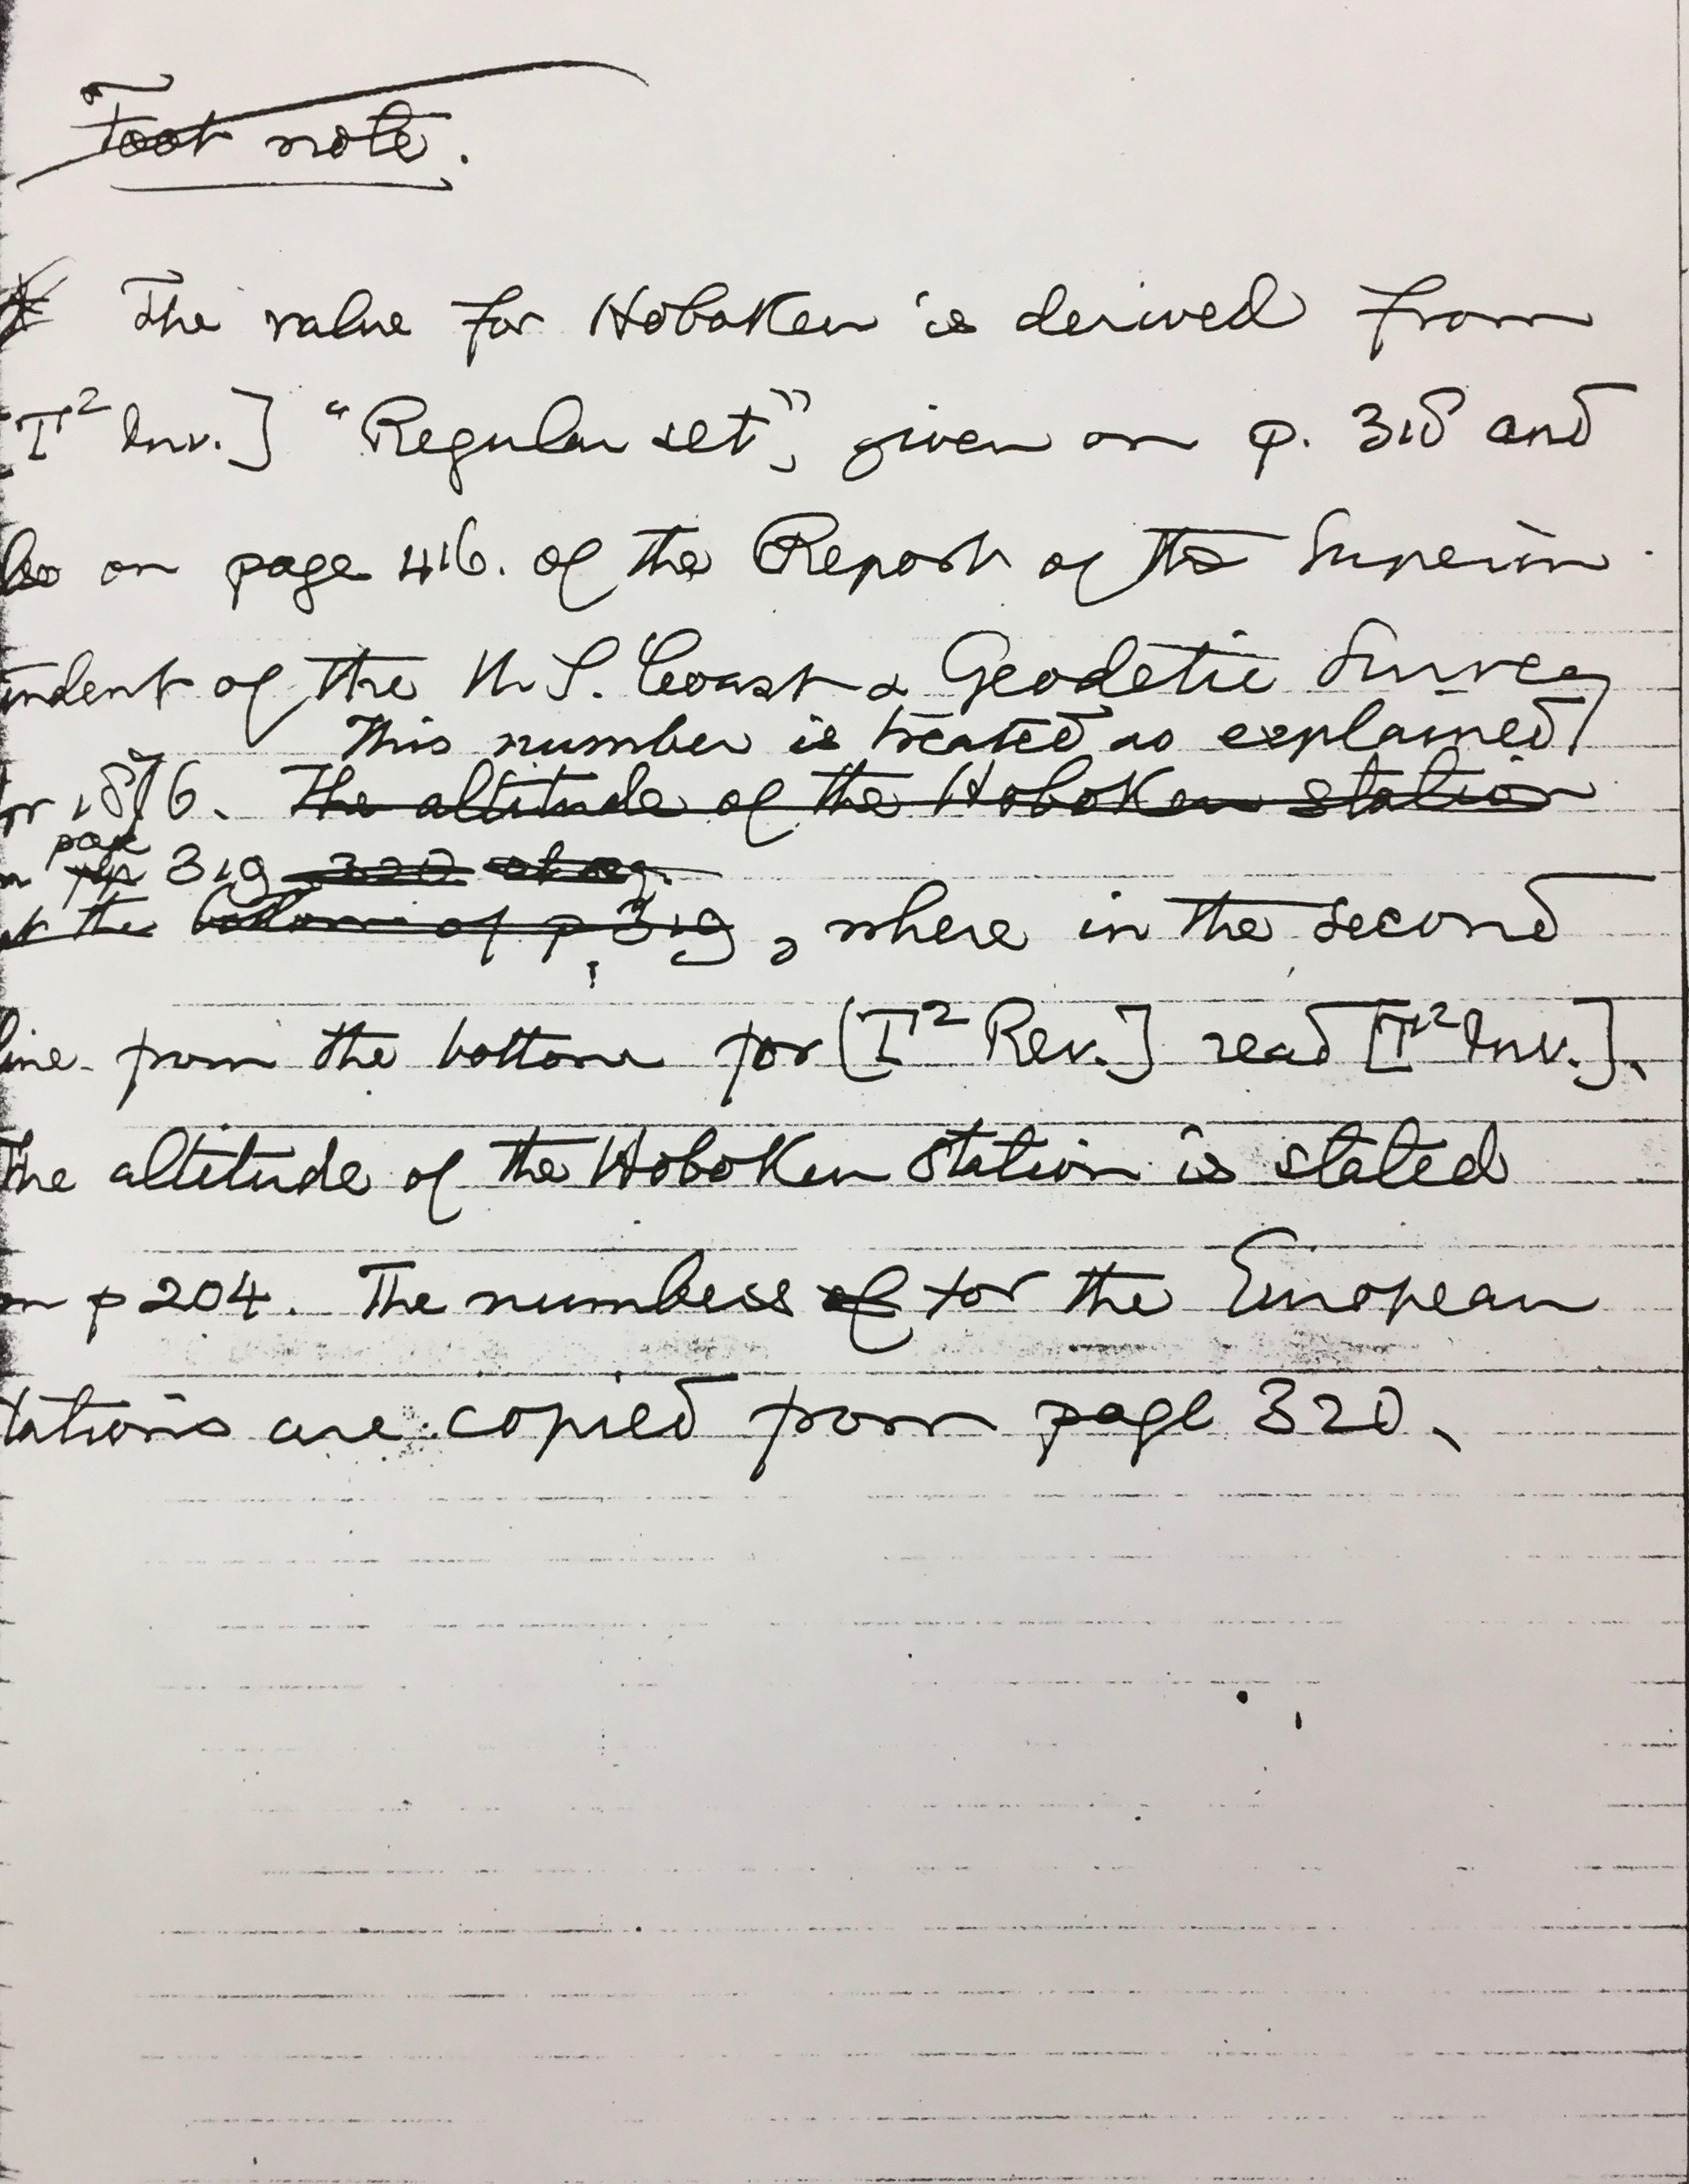 Foot note.
* The value for Hoboken is derived from
T² Inv.] "Regular set", given on p. 318 and
lso on page 416. of the Report of the Superin
ndent of the U.S. Coast & Geodetic Survey
This number is treated as explained
or 1876. The altitude of the Hoboken station
n page 319 320 
t the bottom of p 319, where in the second
line from the bottom for [T² Rev.] read [T² Inv.].
The altitude of the Hoboken Station is stated
on p 204. The numbers of for the European
tations are copied from page 320.